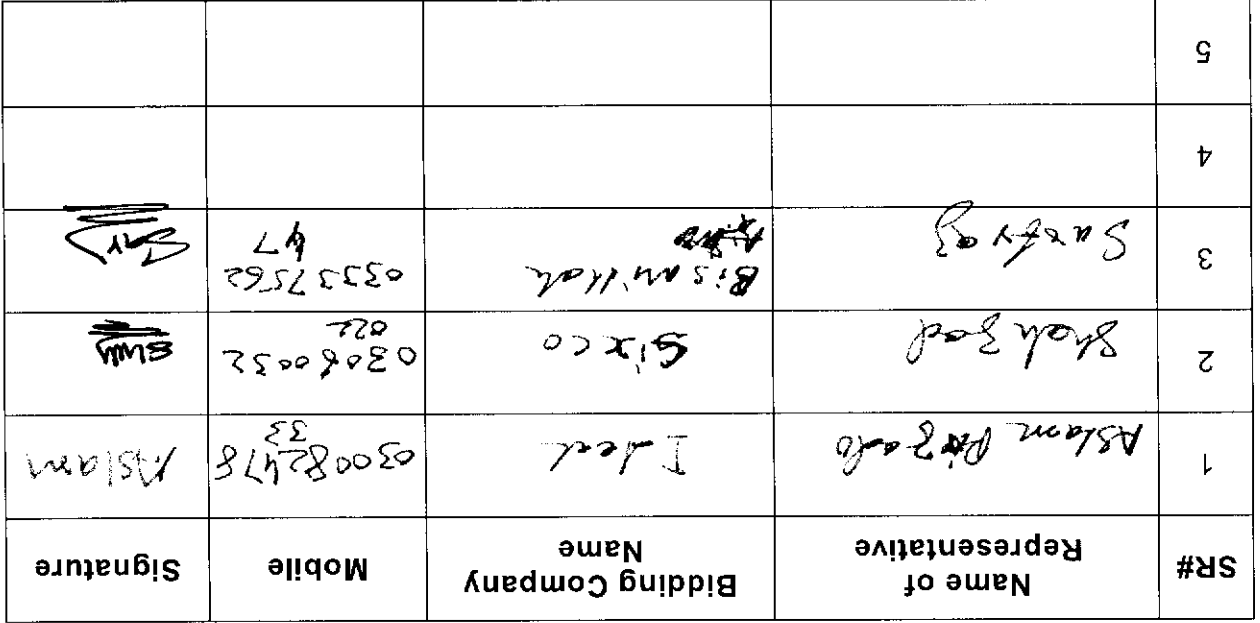 SR#
Name of
Representative
Bidding Company
Name
Mobile
Signature
1
Aslam Pirzado
Ideal
030082478
33
Aslam
2
Shahzad
Sixco
03060032
022
3
Sarfraz
Bismillah
03337562
47
4
5